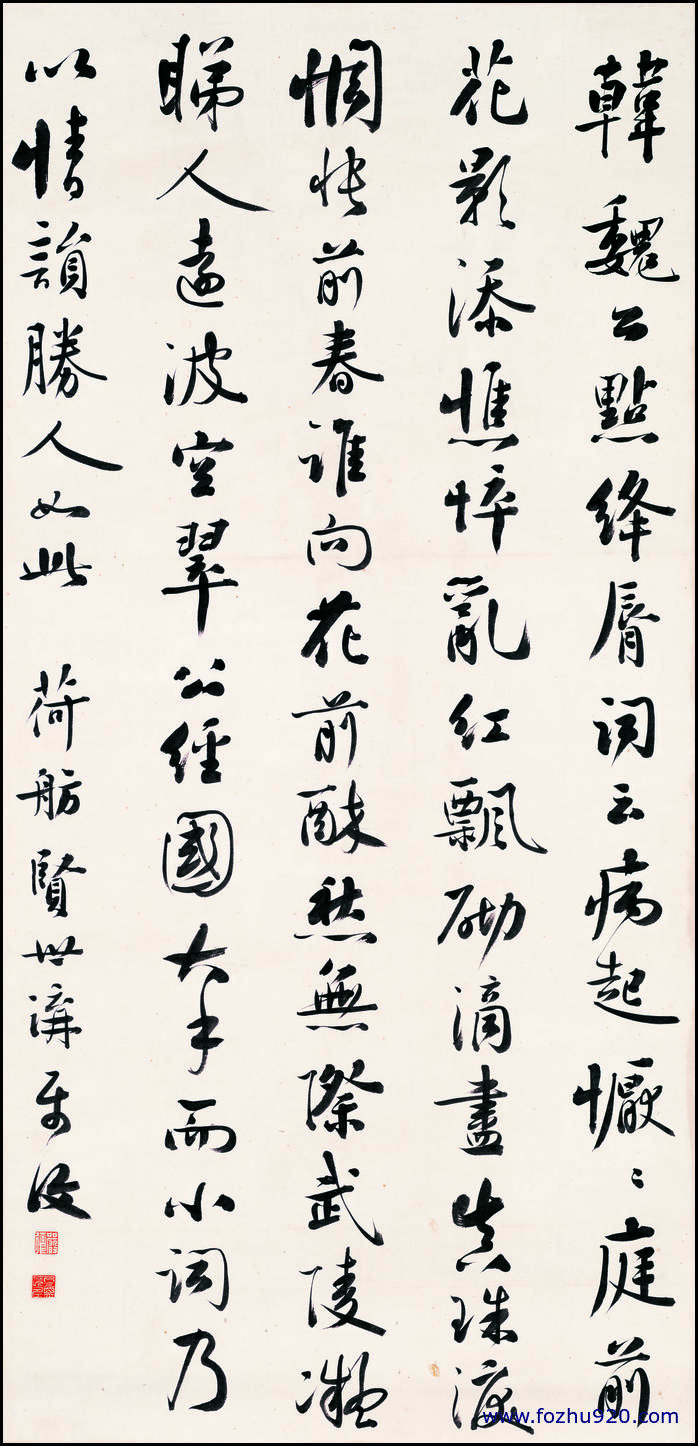 韓魏公點絳脣詞云病起懨々庭前
花影添憔悴亂紅飄砌滴盡真珠淚
惆悵前春誰向花前醉愁無際武陵凝
睇人遠波空翠公經國大手而小詞乃
以情韻勝人如此
荷舫賢世講屬 汝
www.fozhu920.com